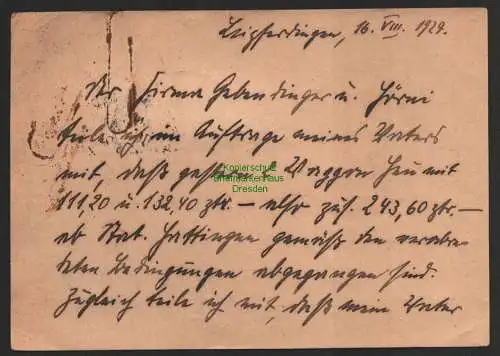 Leipferdingen, 16. VIII. 1929.
Der Firma Gebendinger u. Hörni
teile ich im Auftrage meines Vaters
mit, daß gestern 2 Waggon Heu mit
Kopierschutz
Briefmarkenhaus
Dresden
111,20 u. 132,40 ztr. – also zus. 243,60 ztr. –
ab Stat. Hattingen gemäß den verabre-
deten Bedingungen abgegangen sind.
Zugleich teile ich mit, daß mein Vater